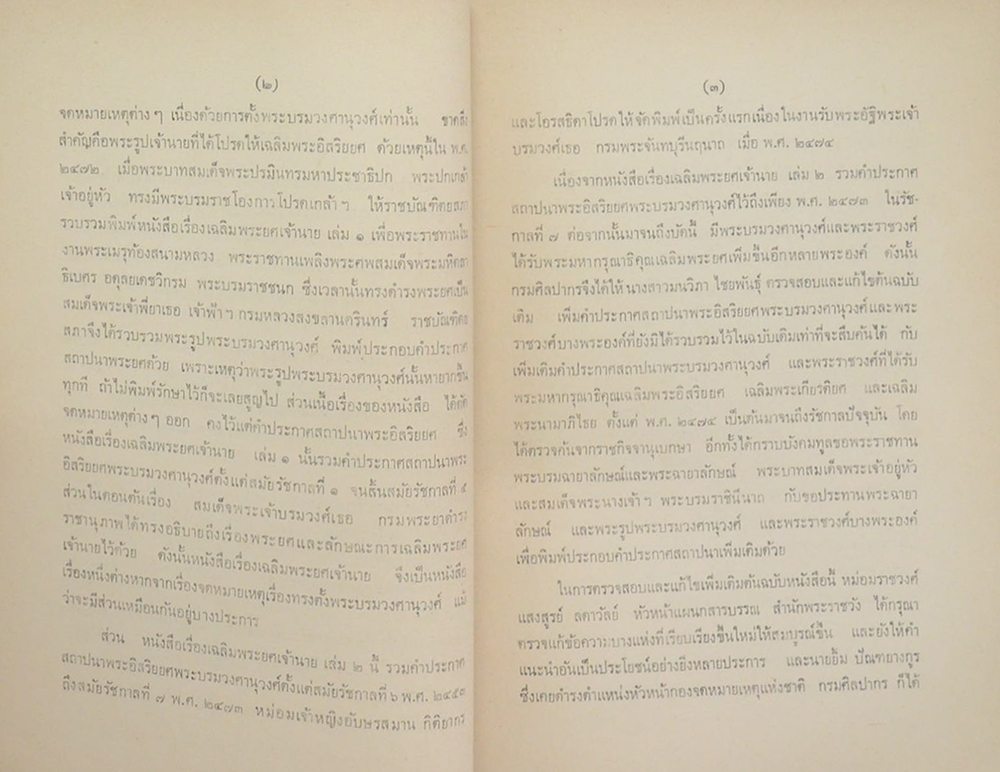 (๒)
จดหมายเหตุต่าง ๆ เนื่องด้วยการตั้งพระบรมวงศานุวงศ์เท่านั้น ขาดสิ่ง
สำคัญคือพระรูปเจ้านายที่ได้โปรดให้เฉลิมพระอิสริยยศ ด้วยเหตุนี้ใน พ.ศ.
๒๔๗๒ เมื่อพระบาทสมเด็จพระปรมินทรมหาประชาธิปก พระปกเกล้า
เจ้าอยู่หัว ทรงมีพระบรมราชโองการโปรดเกล้า ฯ ให้ราชบัณฑิตยสภา
รวบรวมพิมพ์หนังสือเรื่องเฉลิมพระยศเจ้านาย เล่ม ๑ เพื่อพระราชทานใน
งานพระเมรุท้องสนามหลวง พระราชทานเพลิงพระศพสมเด็จพระมหิตลา
ธิเบศร อดุลยเดชวิกรม พระบรมราชชนก ซึ่งเวลานั้นทรงดำรงพระยศเป็น
สมเด็จพระเจ้าพี่ยาเธอ เจ้าฟ้า ฯ กรมหลวงสงขลานครินทร์ ราชบัณฑิตย
สภาจึงได้รวบรวมพระรูปพระบรมวงศานุวงศ์ พิมพ์ประกอบคำประกาศ
สถาปนาพระยศด้วย เพราะเหตุว่าพระรูปพระบรมวงศานุวงศ์นั้นหายากขึ้น
ทุกที ถ้าไม่พิมพ์รักษาไว้ก็จะเลยสูญไป ส่วนเนื้อเรื่องของหนังสือ ได้ตัด
จดหมายเหตุต่าง ๆ ออก คงไว้แต่คำประกาศสถาปนาพระอิสริยยศ ซึ่ง
หนังสือเรื่องเฉลิมพระยศเจ้านาย เล่ม ๑ นั้นรวมคำประกาศสถาปนาพระ
อิสริยยศพระบรมวงศานุวงศ์ตั้งแต่สมัยรัชกาลที่ ๑ จนสิ้นสมัยรัชกาลที่ ๕
ส่วนในตอนต้นเรื่อง สมเด็จพระเจ้าบรมวงศ์เธอ กรมพระยาดำรง
ราชานุภาพได้ทรงอธิบายถึงเรื่องพระยศและลักษณะการเฉลิมพระยศ
เจ้านายไว้ด้วย ดังนั้นหนังสือเรื่องเฉลิมพระยศเจ้านาย จึงเป็นหนังสือ
เรื่องหนึ่งต่างหากจากเรื่องจดหมายเหตุเรื่องทรงตั้งพระบรมวงศานุวงศ์ แม้
ว่าจะมีส่วนเหมือนกันอยู่บางประการ
ส่วน หนังสือเรื่องเฉลิมพระยศเจ้านาย เล่ม ๒ นี้ รวมคำประกาศ
สถาปนาพระอิสริยยศพระบรมวงศานุวงศ์ตั้งแต่สมัยรัชกาลที่ ๖ พ.ศ. ๒๔๕๓
ถึงสมัยรัชกาลที่ ๗ พ.ศ. ๒๔๗๓ หม่อมเจ้าหญิงอัปษรสมาน กิติยากร
(๓)
และโอรสธิดาโปรดให้จัดพิมพ์เป็นครั้งแรกเนื่องในงานรับพระอัฐิพระเจ้า
บรมวงศ์เธอ กรมพระจันทบุรีนฤนาถ เมื่อ พ.ศ. ๒๔๗๔
เนื่องจากหนังสือเรื่องเฉลิมพระยศเจ้านาย เล่ม ๒ รวมคำประกาศ
สถาปนาพระอิสริยยศพระบรมวงศานุวงศ์ไว้ถึงเพียง พ.ศ. ๒๔๗๓ ในรัช-
กาลที่ ๗ ต่อจากนั้นมาจนถึงบัดนี้ มีพระบรมวงศานุวงศ์และพระราชวงศ์
ได้รับพระมหากรุณาธิคุณเฉลิมพระยศเพิ่มขึ้นอีกหลายพระองค์ ดังนั้น
กรมศิลปากรจึงได้ให้ นางสาวมนวิภา ไชยพันธุ์ ตรวจสอบและแก้ไขต้นฉบับ
เดิม เพิ่มคำประกาศสถาปนาพระอิสริยยศพระบรมวงศานุวงศ์และพระ
ราชวงศ์บางพระองค์ที่ยังมิได้รวบรวมไว้ในฉบับเดิมเท่าที่จะสืบค้นได้ กับ
เพิ่มเติมคำประกาศสถาปนาพระบรมวงศานุวงศ์ และพระราชวงศ์ที่ได้รับ
พระมหากรุณาธิคุณเฉลิมพระอิสริยยศ เฉลิมพระเกียรติยศ และเฉลิม
พระนามาภิไธย ตั้งแต่ พ.ศ. ๒๔๗๔ เป็นต้นมาจนถึงรัชกาลปัจจุบัน โดย
ได้ตรวจค้นจากราชกิจจานุเบกษา อีกทั้งได้กราบบังคมทูลขอพระราชทาน
พระบรมฉายาลักษณ์และพระฉายาลักษณ์ พระบาทสมเด็จพระเจ้าอยู่หัว
และสมเด็จพระนางเจ้า ฯ พระบรมราชินีนาถ กับขอประทานพระฉายา
ลักษณ์ และพระรูปพระบรมวงศานุวงศ์ และพระราชวงศ์บางพระองค์
เพื่อพิมพ์ประกอบคำประกาศสถาปนาเพิ่มเติมด้วย
ในการตรวจสอบและแก้ไขเพิ่มเติมต้นฉบับหนังสือนี้ หม่อมราชวงศ์
แสงสูรย์ ลดาวัลย์ หัวหน้าแผนกสารบรรณ สำนักพระราชวัง ได้กรุณา
ตรวจแก้ข้อความบางแห่งที่เรียบเรียงขึ้นใหม่ให้สมบูรณ์ขึ้น และยังให้คำ
แนะนำอันเป็นประโยชน์อย่างยิ่งหลายประการ และนายยิ้ม ปัณฑยางกูร
ซึ่งเคยดำรงตำแหน่งหัวหน้ากองจดหมายเหตุแห่งชาติ กรมศิลปากร ก็ได้